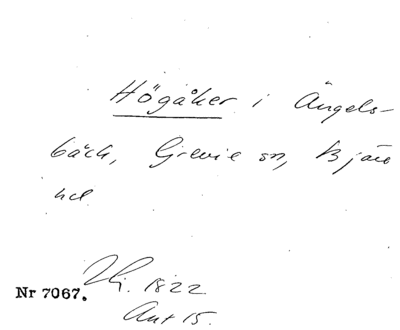 Högåker i Ängels-
bäck, Grevie sn, Bjäre
hd
Nr 7067.
1822
Ant 15.